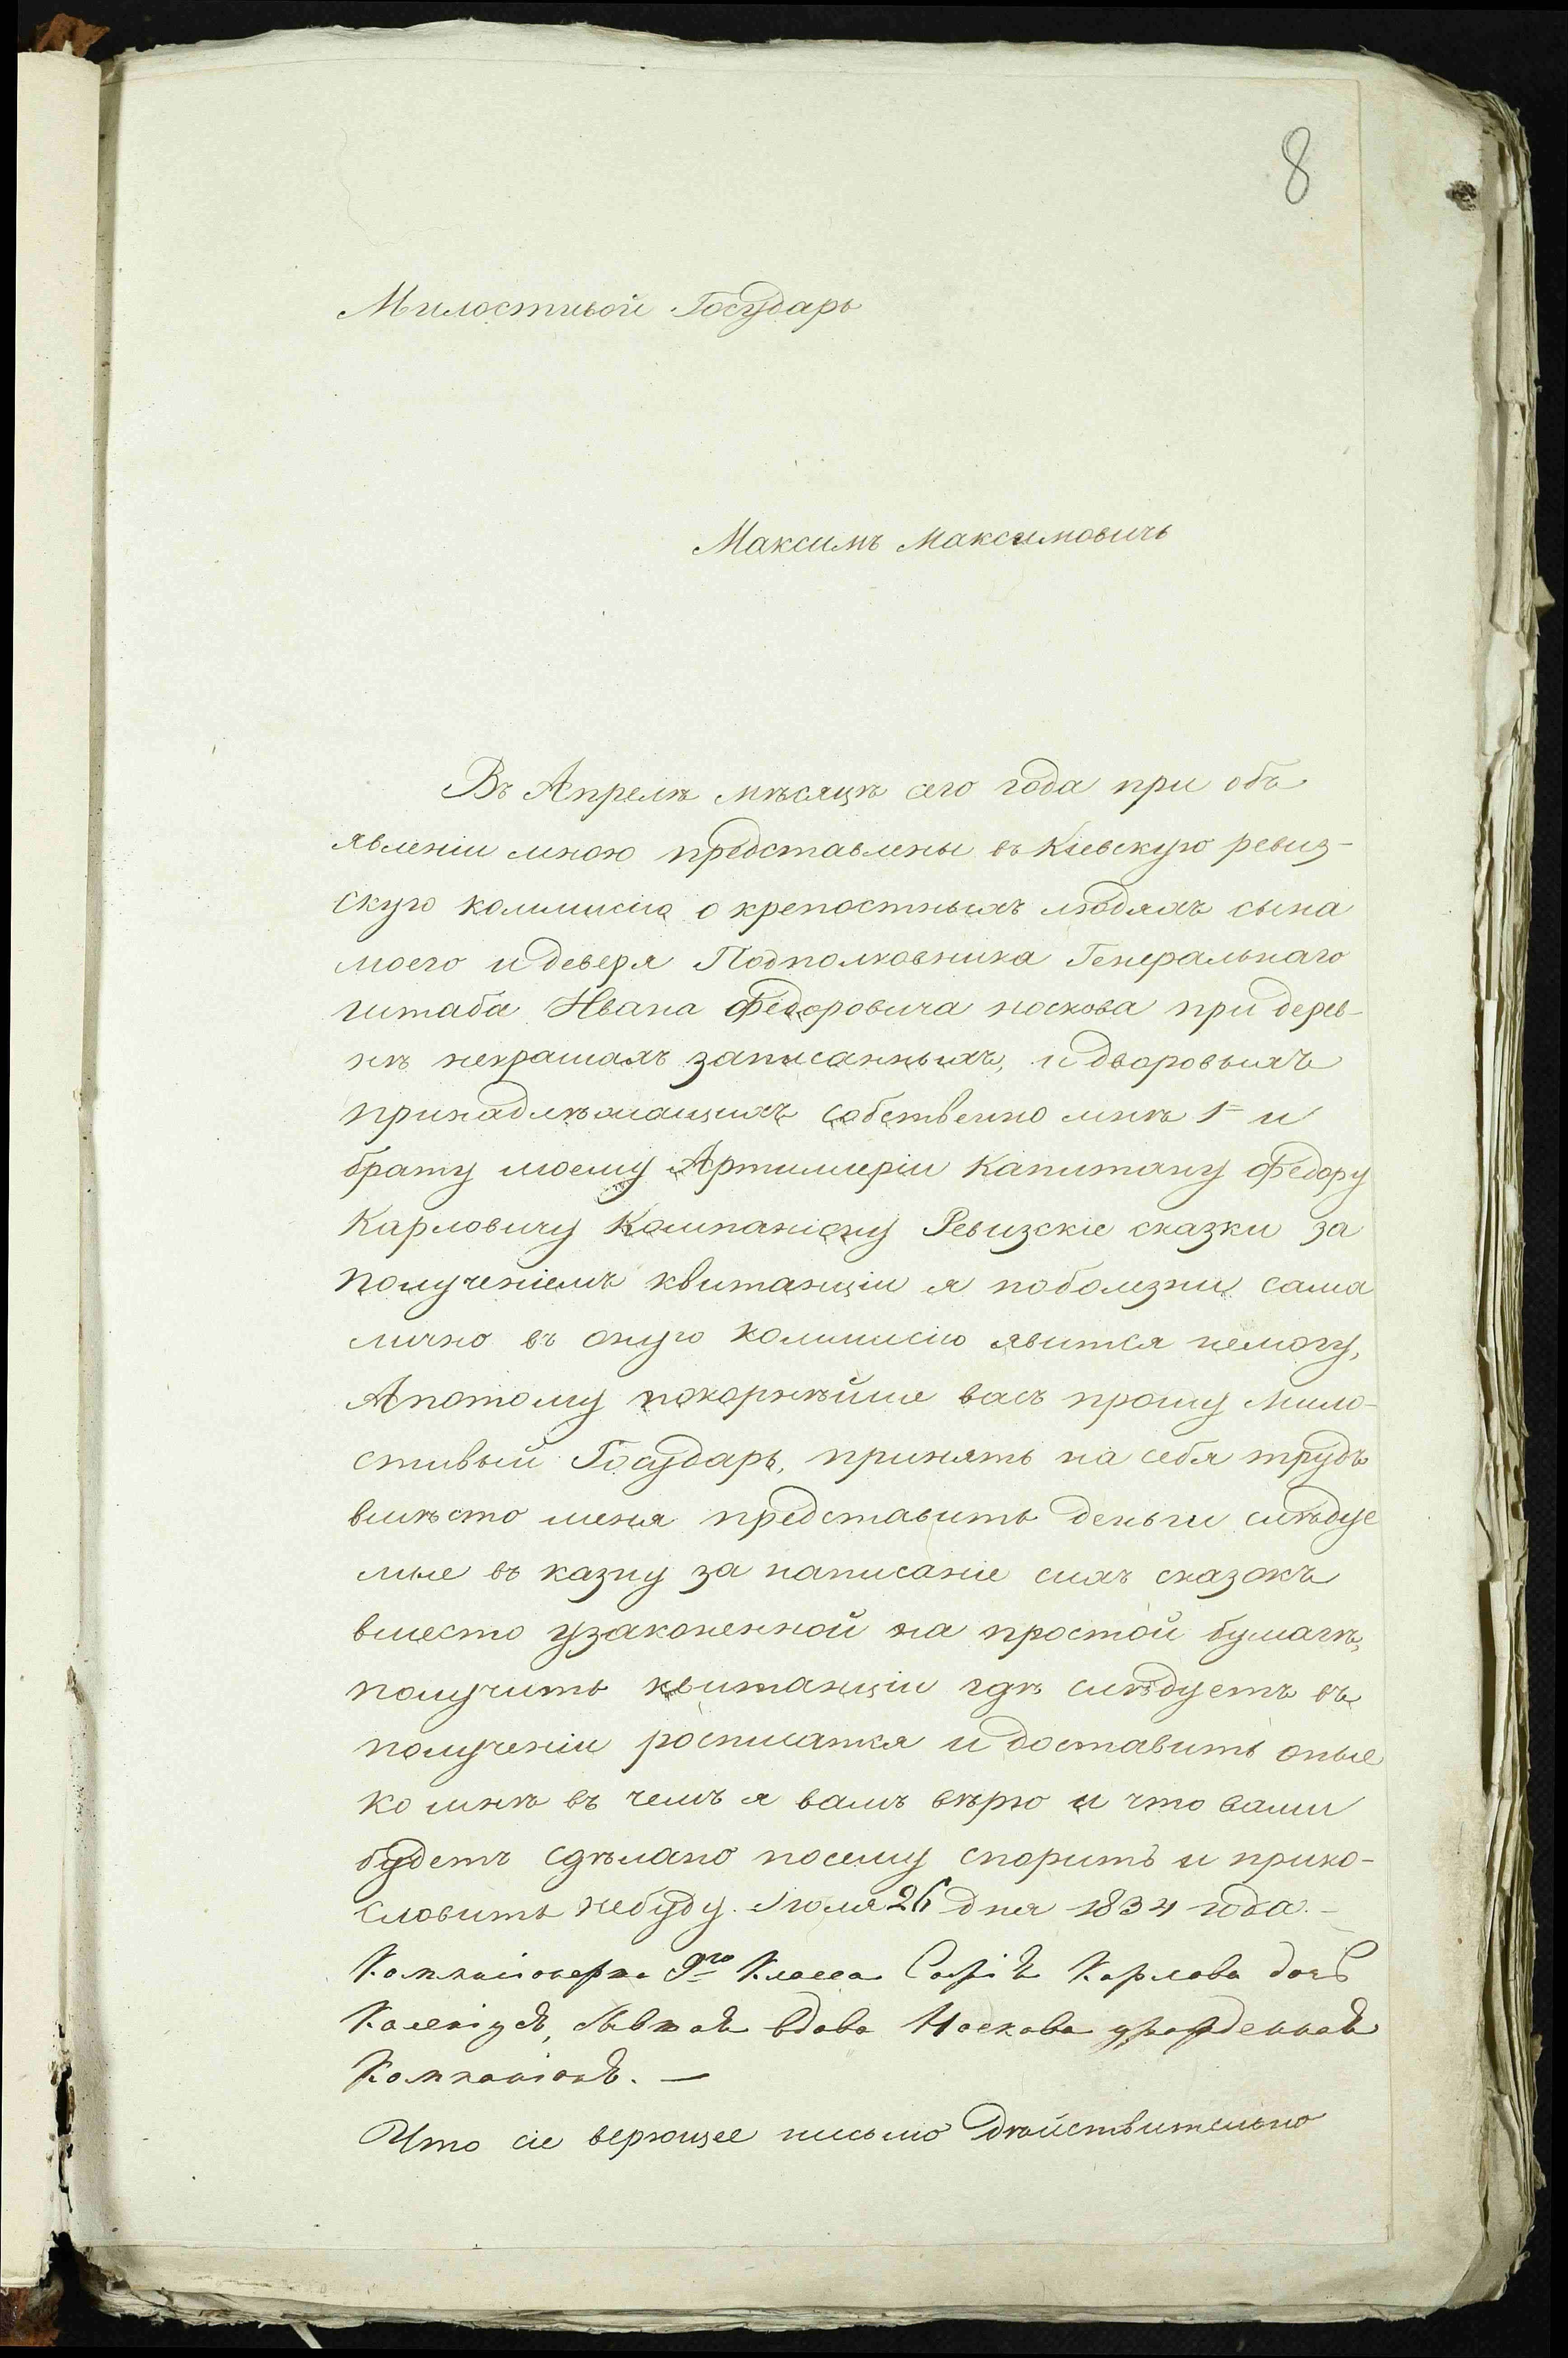 8
Милостивой Государь
Максимъ Максимовичь
Въ Апрелѣ мѣсяцѣ сего года при объ
явленіи мною представлены въ Кіевскую ревиз-
скую коммисію о крепостныхъ людяхъ сына
моего и деверя Подполковника Генеральнаго
штаба Ивана Федоровича носкова при дерев-
нѣ некрашахъ записанныхъ, и дворовыхъ
принадлѣжащихъ собственно мнѣ 1= и
брату моему Артиллеріи Капитану Федору
Карловичу Компаніону Ревизскіе сказки за
полученіемъ квитанціи я поболезни сама
лично въ оную коммисію явится немогу,
Апотому покорнѣйше васъ прошу Мило-
стивый Государь, принять на себя трудъ
вмѣсто меня представить деньги слѣдуе
мые въ казну за написаніе сихъ сказокъ
вместо узаконенной на простой бумагѣ,
получить квитанціи гдѣ слѣдуетъ въ
полученіи росписатся и доставить оные
ко мнѣ въ чемъ я вамъ вѣрю и что вами
будетъ сдѣлано посему спорить и преко-
словить небуду. Июля 26 дня 1834 года.-
9го Класса Софія Карлова дочь
вдова Носкова урожденная
Компаніонъ. —
Что сіе верющее письмо дѣйствительно